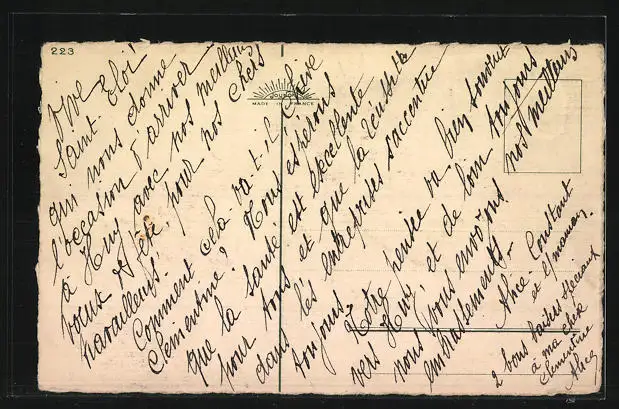 223
MADE IN FRANCE
Vive
Saint Eloi!
qui nous donne
l'occasion d'arriver
à Huy avec nos meilleurs
vœux de fête, pour nos chers
travailleurs!
Comment cela va-t-il Chère
Clémentine? Nous espérons
que la santé est excellente
pour tous et que la réussite
dans les entreprises s'accentue
toujours.
Notre pensée va bien souvent
vers Huy, et de loin toujours
nous vous envoyons nos meilleurs
embrassements.
Alice - Constant
et l'maman
2 bons baisers spéciaux
à ma chère
Clémentine
Alice